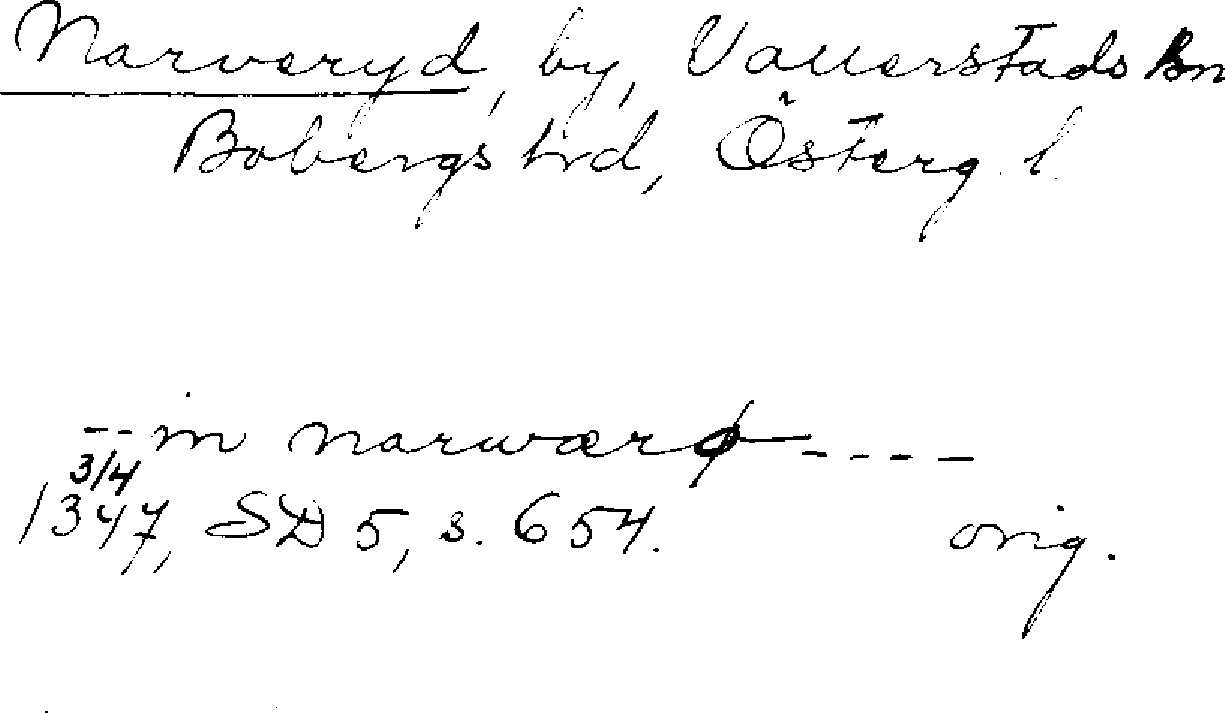 Narveryd, by, Vallerstads sn
Bobergs hrd, Österg. l.
-- in narwærø ----
3/4
1347, SD 5, s. 654. orig.